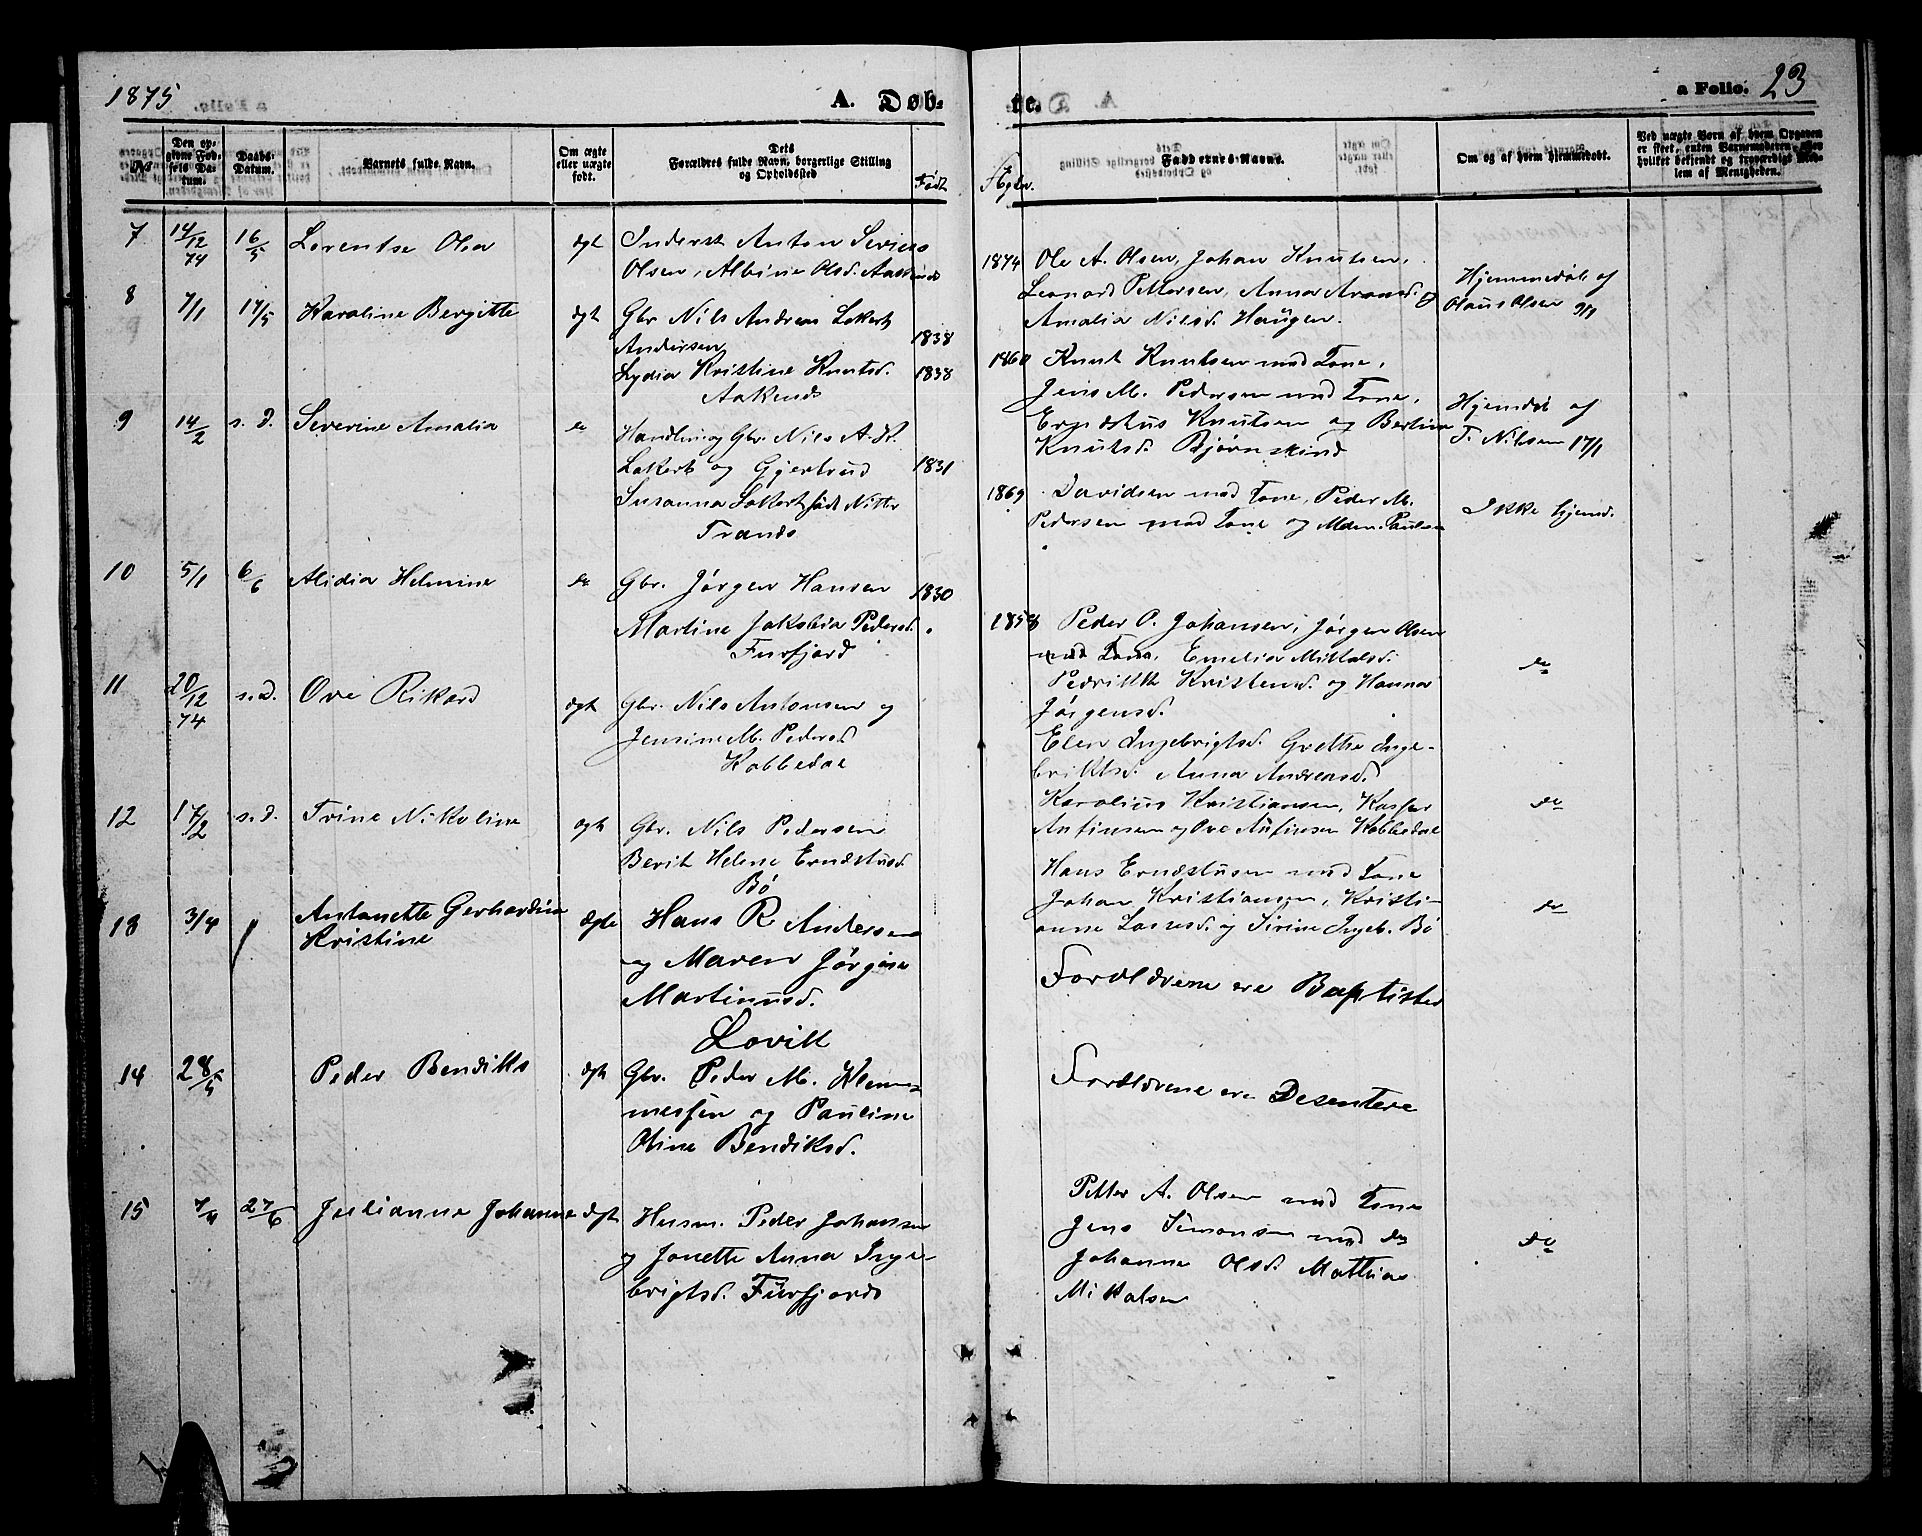 1875
A. Døb-
te.
a Folio. 23
№
Den op-
givne Fød-
sels Da-
tum.
Daabs-
Datum.
Barnets fulde Navn.
Om ægte
eller uægte
født.
Dets
Forældres fulde Navn, borgerlige Stilling
og Opholdssted
Født
Faddernes Navne.
Om og af hvem hjemmedøbt.
Ved uægte Børn af hvem Opgaven
er skeet, enten Barnemoderen, eller
hvilket bekjendt og troværdigt Med-
lem af Menigheden.
7 14/12 74 16/5 Lorentse Olea ægt
Olsen, Albine Olsd.
1874 Ole A. Olsen, Johan Knutsen,
Leonard Pettersen, Anna
Amalia Nilsd. Haugen.
Hjemmedøb af
Olaus Olsen 9/1
8 7/1 17/5 Karoline Bergitte ægt
Gbr Nils Andreas Lokert
Andersen 1838
Lydia Kristine Knutsd. 1838
Aakenes
1860 Knut Knutsen med Kone,
Jens M. Pedersen med Kone,
Ernæstus Knutsen og Berlina
Knutsd. Bjørnskind
Hjemdøb af
T. Nilsen 17/1
9 14/2 s. d. Severine Amalia do
Handlm og Gbr. Nils A. K.
Lokert og Gjertrud 1831
Susanna Lokert født Nitter
Tranes
1869 Davidsen med Kone, Peder M.
Pedersen med Kone og Paulsen
Ikke hjemd.
10 5/1 6/6 Alidia Helmine do
Gbr. Jørgen Hansen 1830
Martine Jakobia Pedersd.
Furfjord
Peder O. Johansen, Jørgen Olsen
med Kone, Emelia Mikkalsd.
Pedrikke Kristensd. og Hanna
Jørgensd.
do
11 20/12 74 s.d. Ove Rikard ægt
Gbr. Nils Antonsen og
Jensine M. Pedersd
Kobbedal
Elen Ingebrigtsd. Grethe Inge-
briktsd. Anna Andreasd.
Karolius Kristiansen, Kasper
Antinsen og Ove Antinsen Kobbedal
do
12 17/2 s.d. Trine Nikoline ægt
Gbr. Nils Pedersen
Berit Helene Ernæstusd.
Bø
Hans Ernæstusen med Kone
Johan Kristiansen, Kristi-
anne Larsd. og Sirine Ingeb. Bø
do
13 3/4 Antonette Gerhardine
Kristine ægte
Hans R Andersen
og Maren Jørgine
Martinusd.
Lovik
Forældrene ere Baptister
14 28/5 Peder Bendiks ægt
Gbr. Peder M. Klem-
metsen og Pauline
Oline Bendiksd.
Forældrene ere Desentere
15 7/4 27/6 Julianne Johanne ægt
Husm. Peder Johansen
og Jonette Anna Inge-
brigtsd. Furfjord
Petter A. Olsen med Kone
Jens Simonsen med do
Johanne Olsd. Mathias
Mikalsen
do